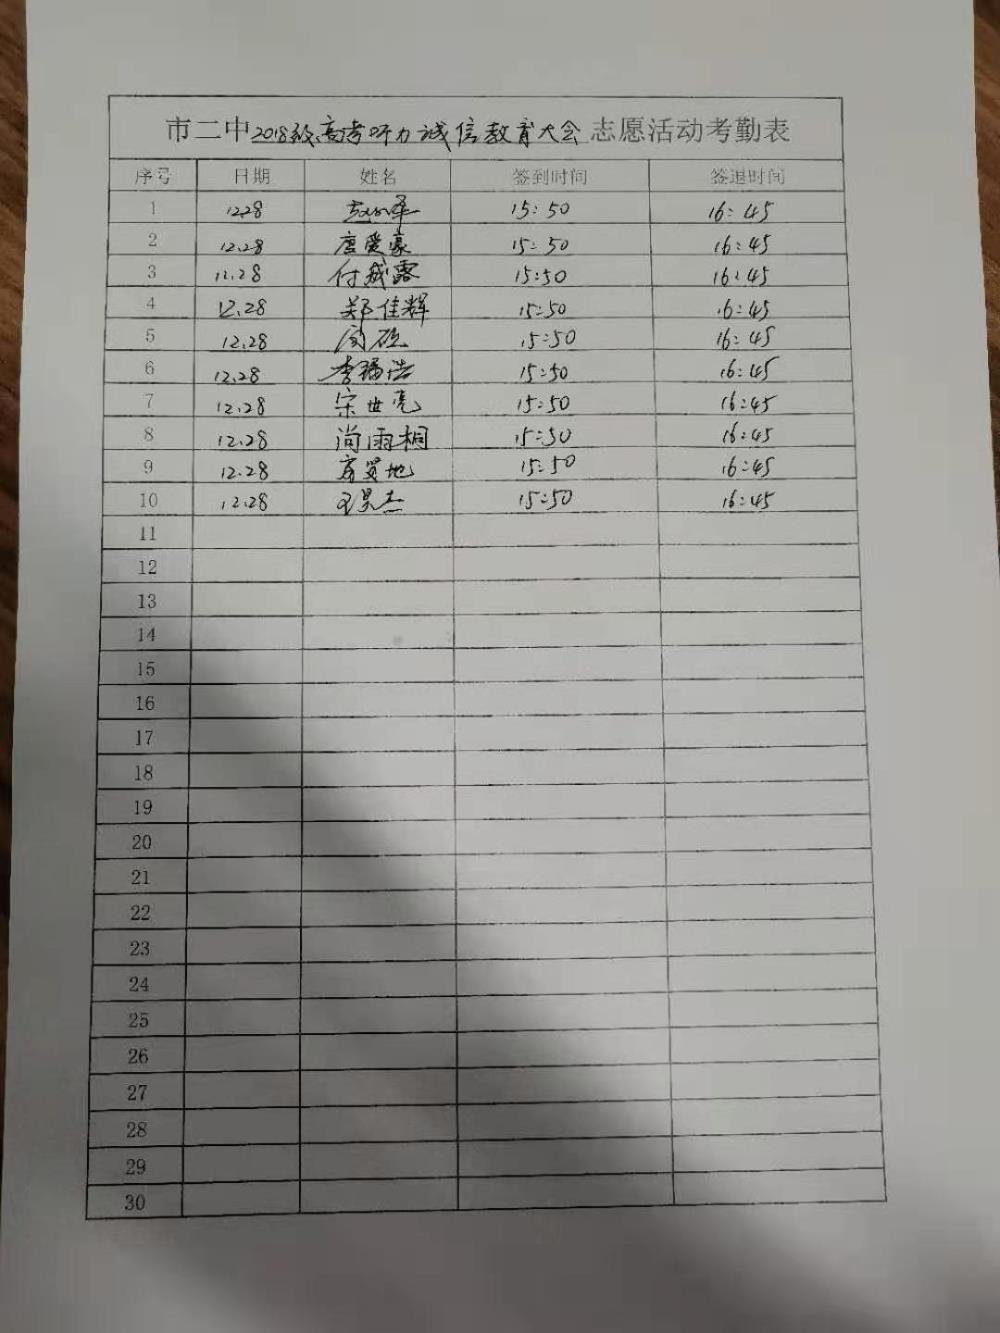 市二中2018级高考听力诚信教育大会志愿活动考勤表
序号 日期 姓名 签到时间 签退时间
1 12.28 15:50 16:45
2 12.28 唐爱豪 15:50 16:45
3 12.28 付成露 15:50 16:45
4 12.28 郑佳辉 15:50 16:45
5 12.28 闫硕 15:50 16:45
6 12.28 李瑞浩 15:50 16:45
7 12.28 宋世亮 15:50 16:45
8 12.28 尚雨桐 15:50 16:45
9 12.28 15:50 16:45
10 12.28 王昊杰 15:50 16:45
11
12
13
14
15
16
17
18
19
20
21
22
23
24
25
26
27
28
29
30